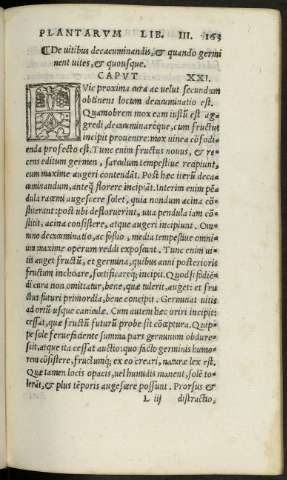 PLANTARVM LIB. III. 163
De uitibus decacuminandis, & quando germi
nent uites, & quousque.
CAPVT XXI.
HVic proxima cura ac uelut secundum
obtinens locum decacuminatio est.
Quamobrem mox eam iustũ est ag
gredi, decuminareq́ue, cum fructus
incipit prouenire: mox uinea cõfodi
enda profecto est. Tunc enim fructus nouus, & re
cens editum germen, sarculum tempestiue recipiunt,
cum maxime augeri contendãt. Post hæc iterũ deca
cuminandum, anteq̃ florere incipiãt. Interim enim pẽ
dula racemi augescere solet, quia nondum acina cõ
stiterant: post ubi defloruerint, uua pendula iam cõ
sistit, acina consistere, atque augeri incipiunt. Om
nino decacuminatio, ac fossio, media tempestiue omni
um maxime operum reddi exposcunt. Tunc enim ui
tis auget fructũ, et germina, quibus anni posterioris
fructum inchoare, fortificareq́; incipit. Quod si fodiẽ
di cura non omittatur, bene, quæ tulerit, auget: et fru
ctus futuri primordia, bene concipit. Germinat uitis
ad ortũ usque caniculæ. Cum autem hæc oriri incipit:
cessat, quæ fructũ futurũ probe sit cõceptura. Quip
pe sole ferue faciente summa pars germinum obdure-
scit, atque ita cessat auctio: quo facto germinis humo
rem cõsistere, fructumq́; ex eo creari, naturæ lex est.
Quæ tamen locis opacis, uel humidis manent, solẽ to
lerãt, & plus tẽporis augescere possunt. Prorsus &
L iij distractio,